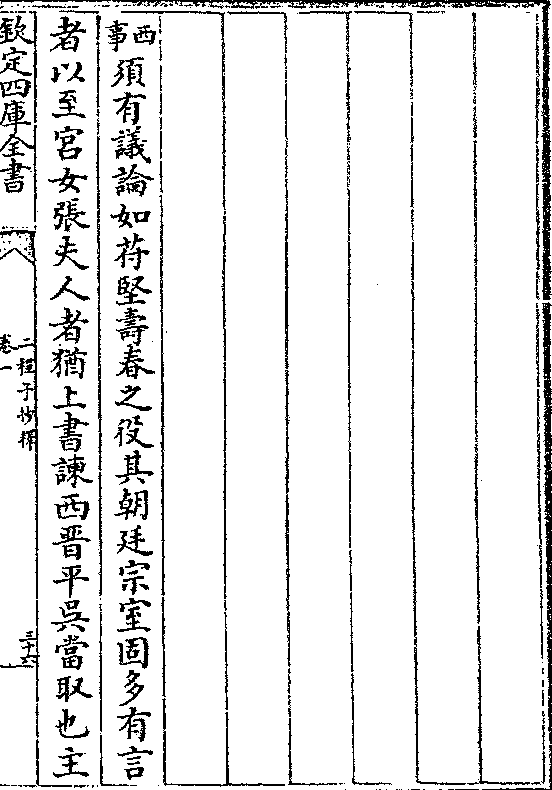 西事須有議論如苻堅壽春之役其朝廷宗室固多有言
者以至宮女張夫人者猶上書諫西晋平吳當取也主
欽定四庫全書
二程子抄釋
卷一
三十六